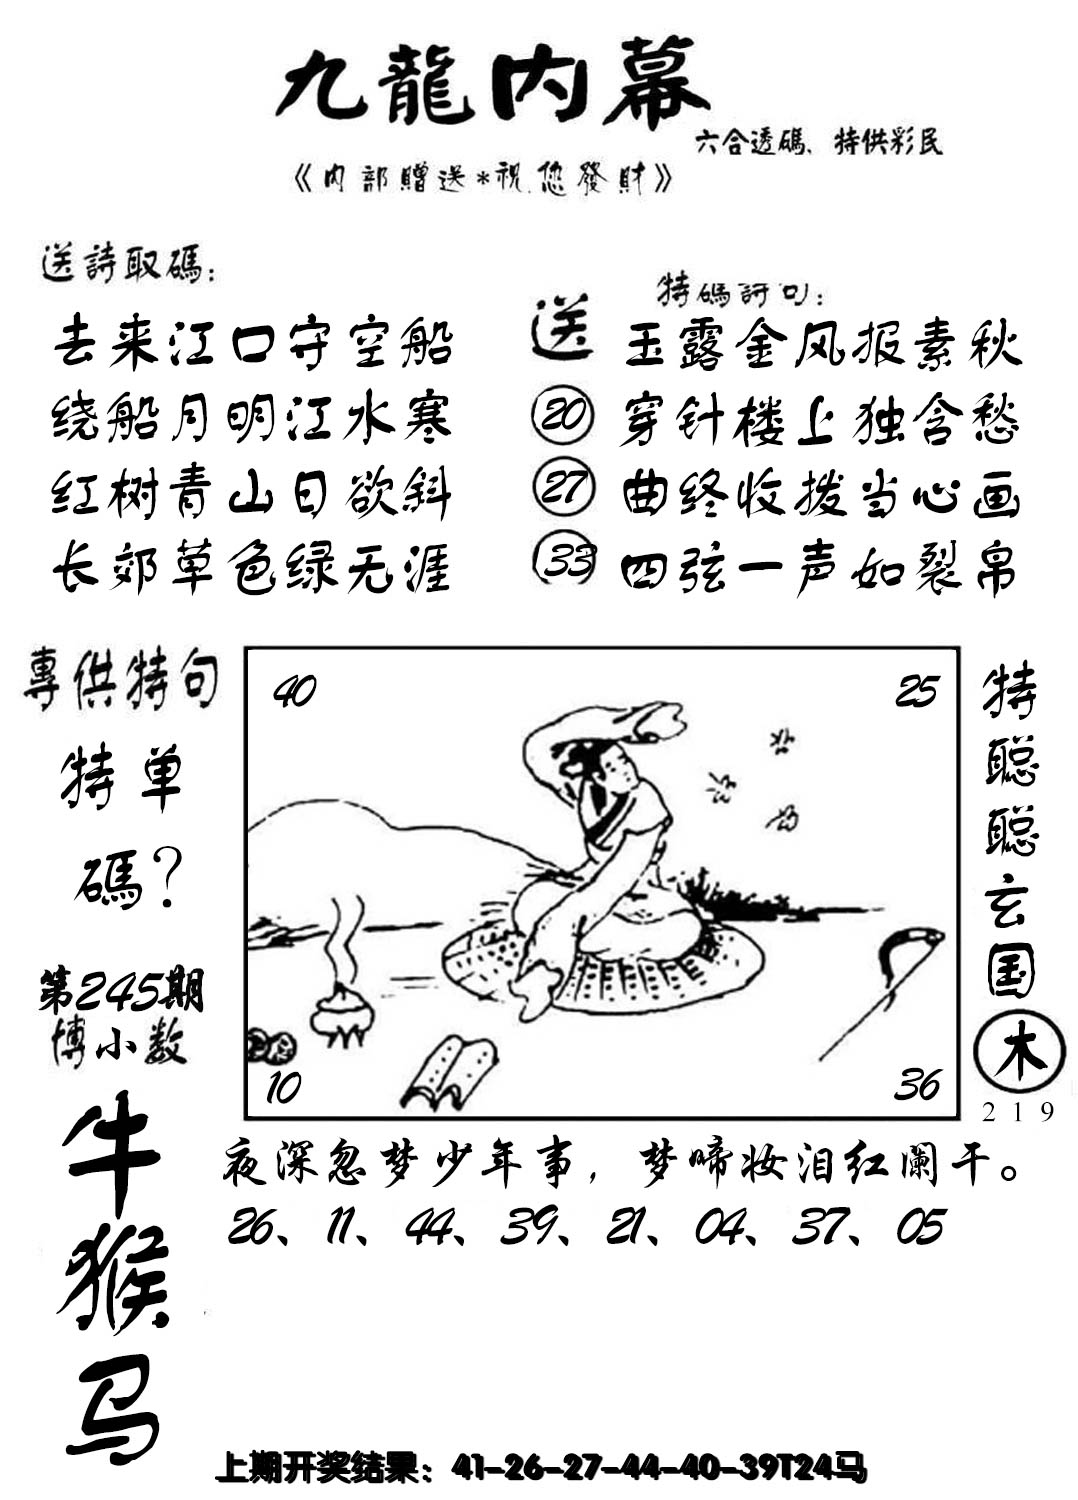 九龍内幕
六合透碼、特供彩民
《内部贈送*祝您發財》
送詩取碼：
去来江口守空船
绕船月明江水寒
红树青山日欲斜
长郊草色绿无涯
送
20
27
33
特碼詩句：
玉露金风报素秋
穿针楼上独含愁
曲终收拨当心画
四弦一声如裂帛
專供特句
特单
碼？
第245期
博小数
牛
猴
马
40
25
10
36
特
聪
聪
玄
国
木
219
夜深忽梦少年事，梦啼妆泪红阑干。
26、11、44、39、21、04、37、05
上期开奖结果：41-26-27-44-40-39T24马